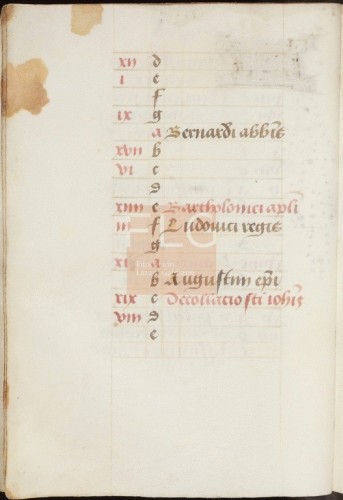 xii d
i e
f
ix g
a Bernardi abbis
xvii b
vi c
d
xiiii e Bartholomei apli
iii f Ludovici regis
g
xi a
b Augustini epi
xix c Decollacio sti iohis
viii d
e